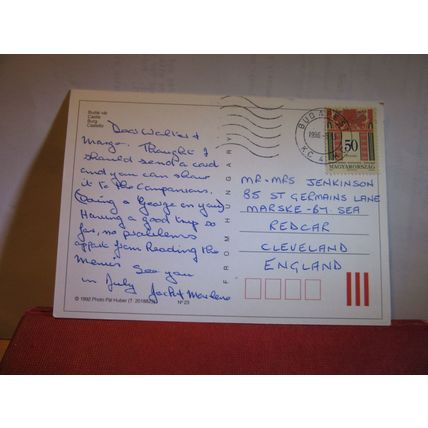 Budai vár
Castle
Burg
Castello
Dear Walter &
Margo. Thought I
should send a card
and you can show
it to the Companions.
(Doing a George on you)
Having a good trip so
far, no problems
appart from Reading the
Menus. See you
in July Jack & Marlene
© 1992 Photo Pál Huber
N° 23
FROM HUNGARY
BUDAPEST
1996
50
MAGYARORSZÁG
MR. MRS JENKINSON
85 ST GERMAINS LANE
MARSKE-BY SEA
REDCAR
CLEVELAND
ENGLAND